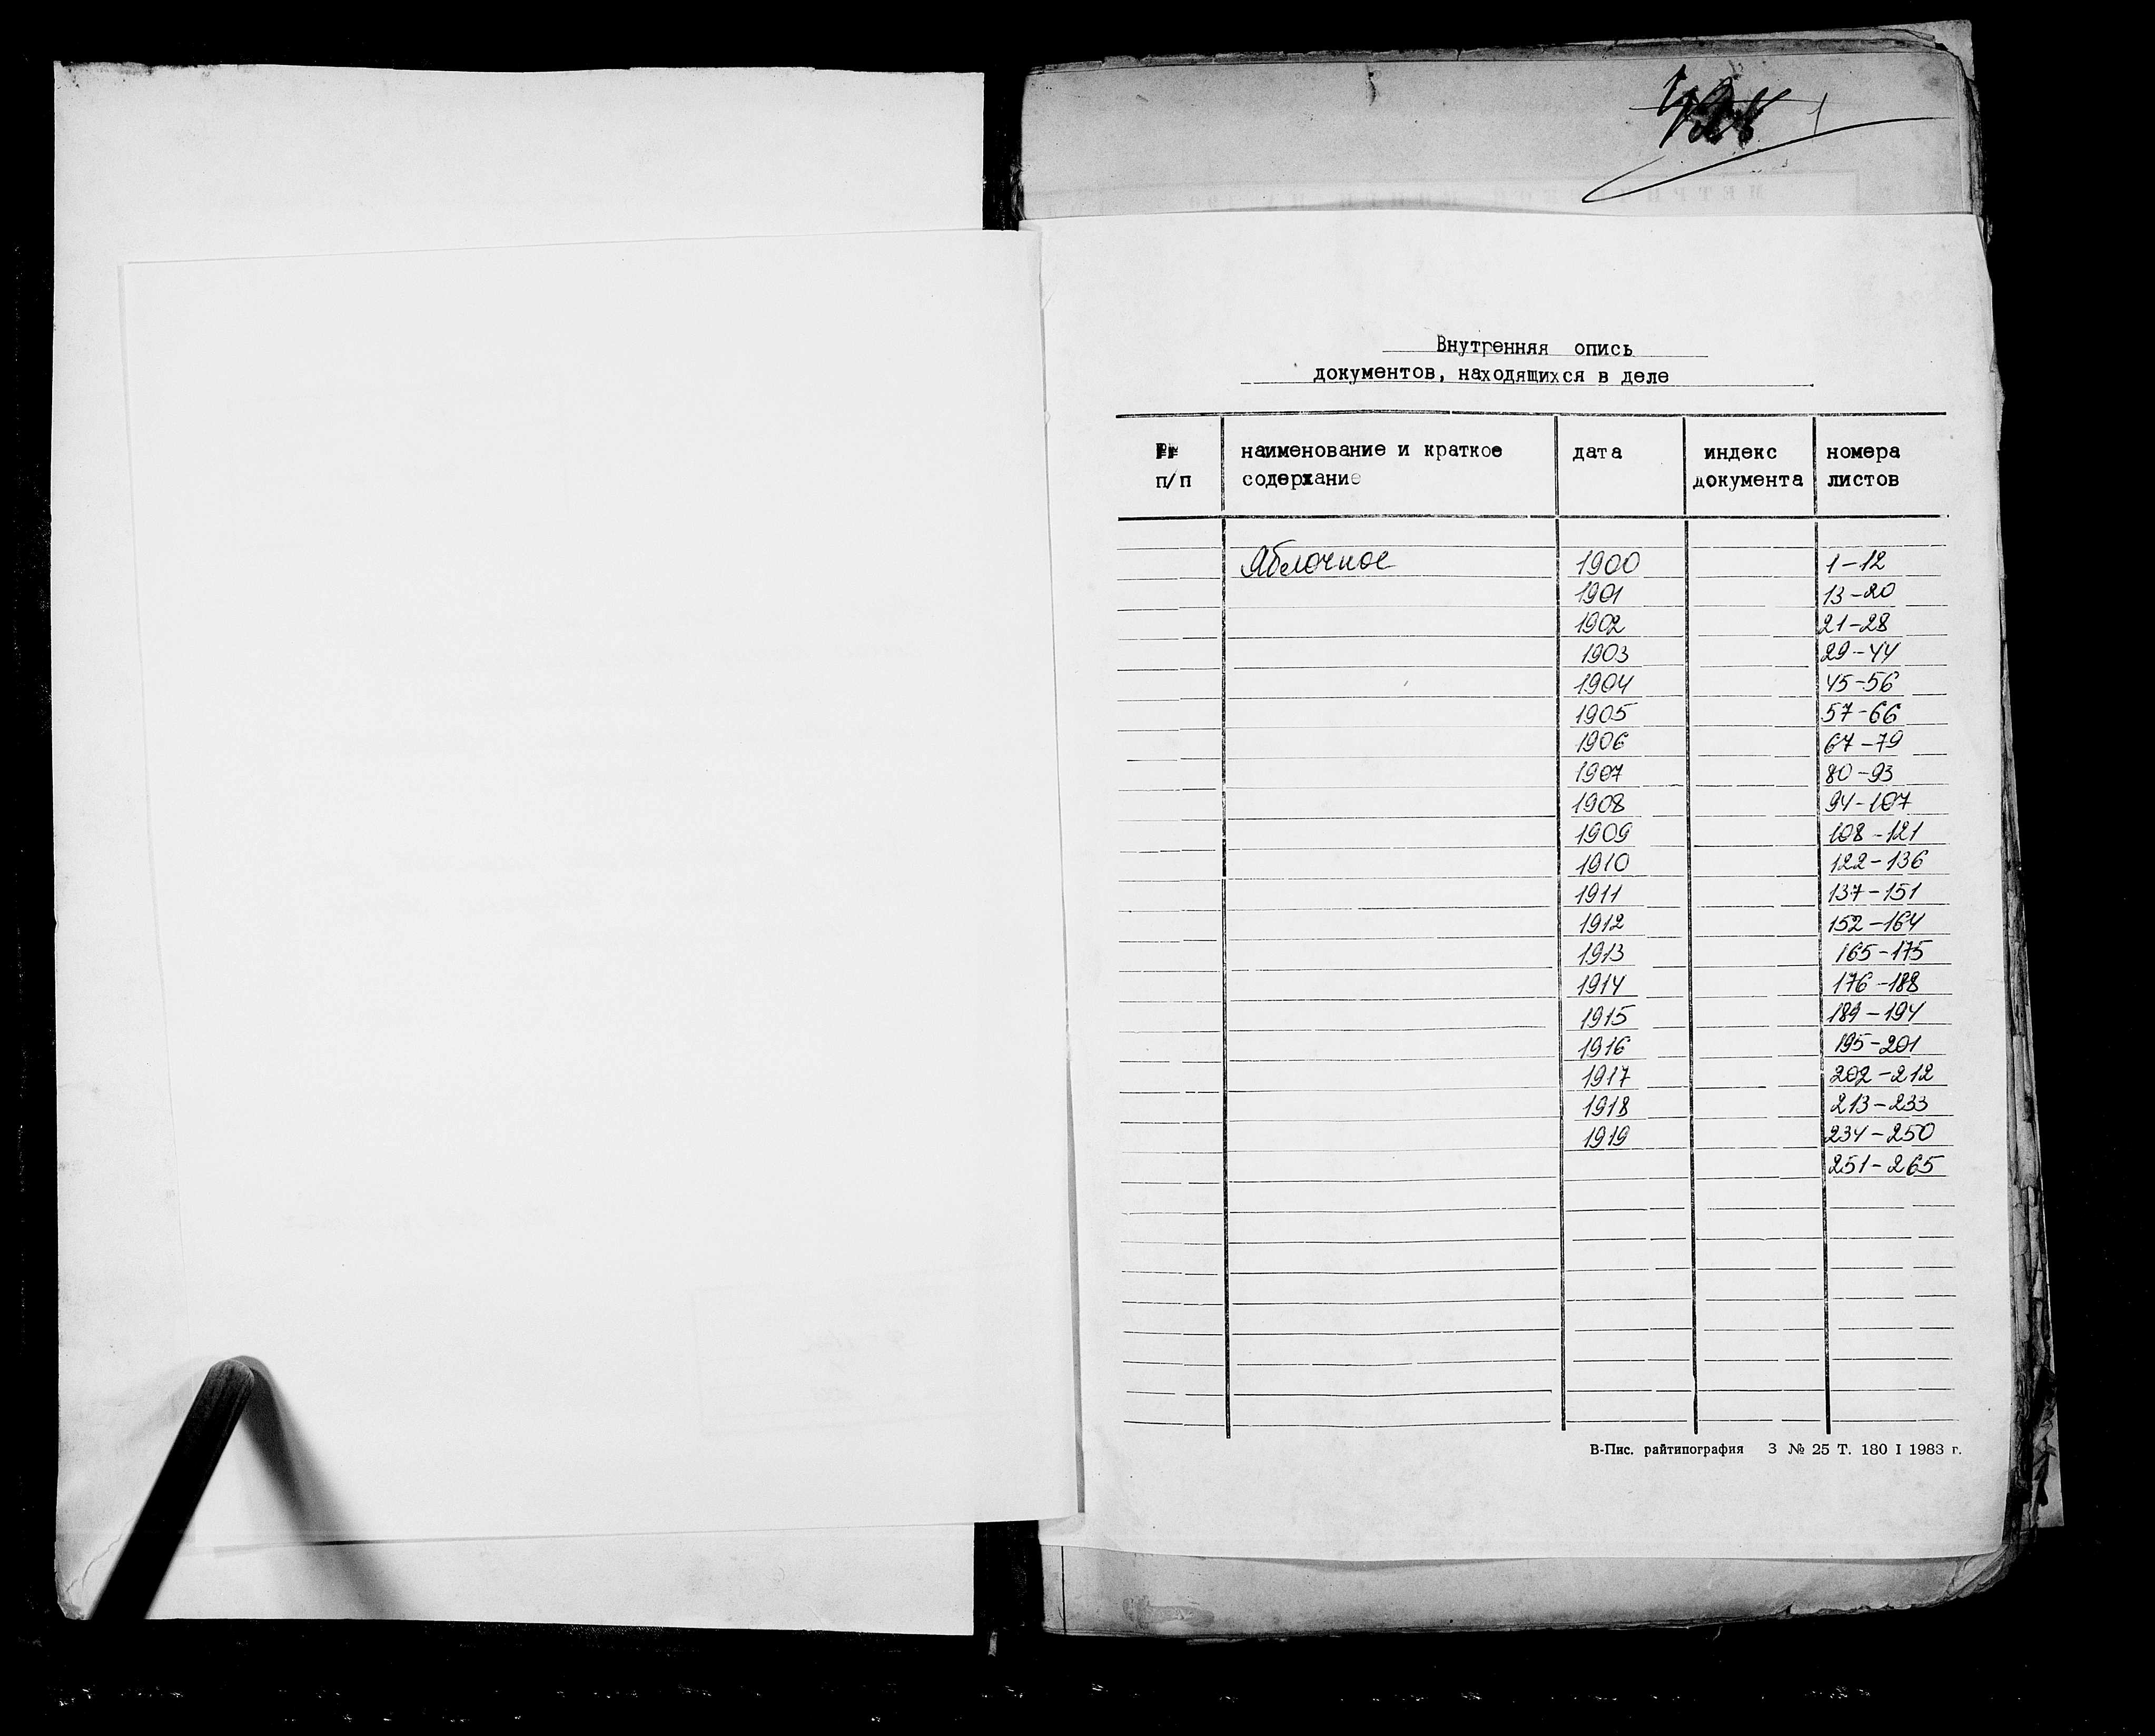 1
Внутренняя опись
документов, находящихся в деле
п/п наименование и краткое содержание дата индекс документа номера листов
Яблочное 1900 1-12
1901 13-20
1902 21-28
1903 29-44
1904 45-56
1905 57-66
1906 67-79
1907 80-93
1908 94-107
1909 108-121
1910 122-136
1911 137-151
1912 152-164
1913 165-175
1914 176-188
1915 189-194
1916 195-201
1917 202-212
1918 213-233
1919 234-250
251-265
В-Пис. райтипография З № 25 Т. 180 I 1983 г.